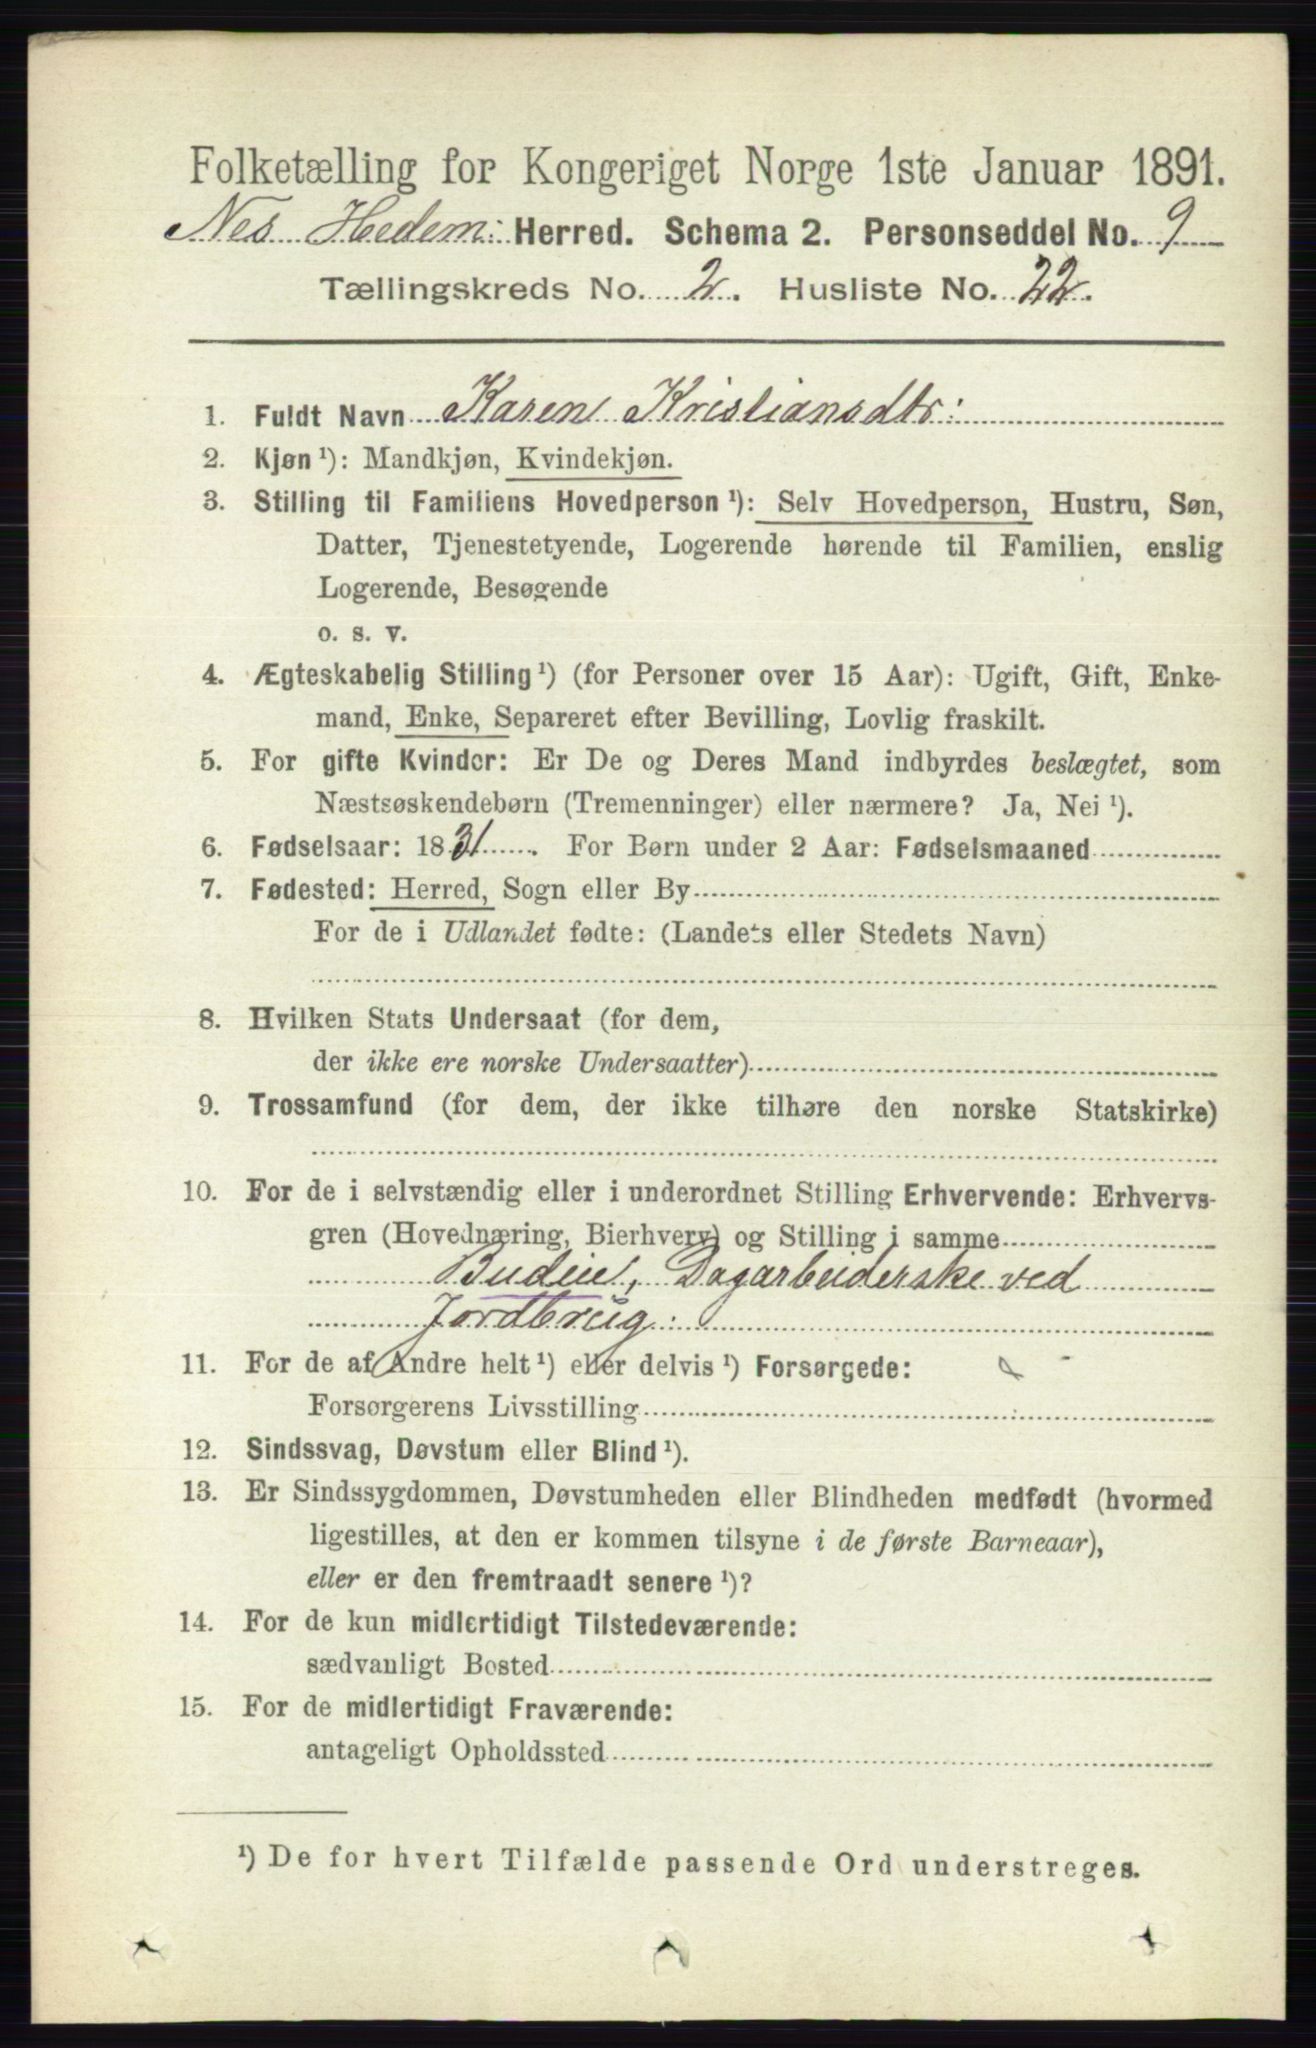 Folketælling for Kongeriget Norge 1ste Januar 1891.
Nes Hedem: Herred. Schema 2. Personseddel No. 9
Tællingskreds No. 2. Husliste No. 22.
1. Fuldt Navn Karen Kristiansdtr:
2. Kjøn ¹): Mandkjøn, Kvindekjøn.
3. Stilling til Familiens Hovedperson ¹): Selv Hovedperson, Hustru, Søn,
Datter, Tjenestetyende, Logerende hørende til Familien, enslig
Logerende, Besøgende
o. s. v.
4. Ægteskabelig Stilling ¹) (for Personer over 15 Aar): Ugift, Gift, Enke-
mand, Enke, Separeret efter Bevilling, Lovlig fraskilt.
5. For gifte Kvinder: Er De og Deres Mand indbyrdes beslægtet, som
Næstsøskendebørn (Tremenninger) eller nærmere? Ja, Nei ¹).
6. Fødselsaar: 1831. For Børn under 2 Aar: Fødselsmaaned
7. Fødested: Herred, Sogn eller By
For de i Udlandet fødte: (Landets eller Stedets Navn)
8. Hvilken Stats Undersaat (for dem,
der ikke ere norske Undersaatter)
9. Trossamfund (for dem, der ikke tilhøre den norske Statskirke)
10. For de i selvstændig eller i underordnet Stilling Erhvervende: Erhvervs-
gren (Hovednæring, Bierhverv) og Stilling i samme
Budeie, Dagarbeiderske ved
Jordbrug.
11. For de af Andre helt ¹) eller delvis ¹) Forsørgede:
Forsørgerens Livsstilling
12. Sindssvag, Døvstum eller Blind ¹).
13. Er Sindssygdommen, Døvstumheden eller Blindheden medfødt (hvormed
ligestilles, at den er kommen tilsyne i de første Barneaar),
eller er den fremtraadt senere ¹)?
14. For de kun midlertidigt Tilstedeværende:
sædvanligt Bosted
15. For de midlertidigt Fraværende:
antageligt Opholdssted
¹) De for hvert Tilfælde passende Ord understreges.